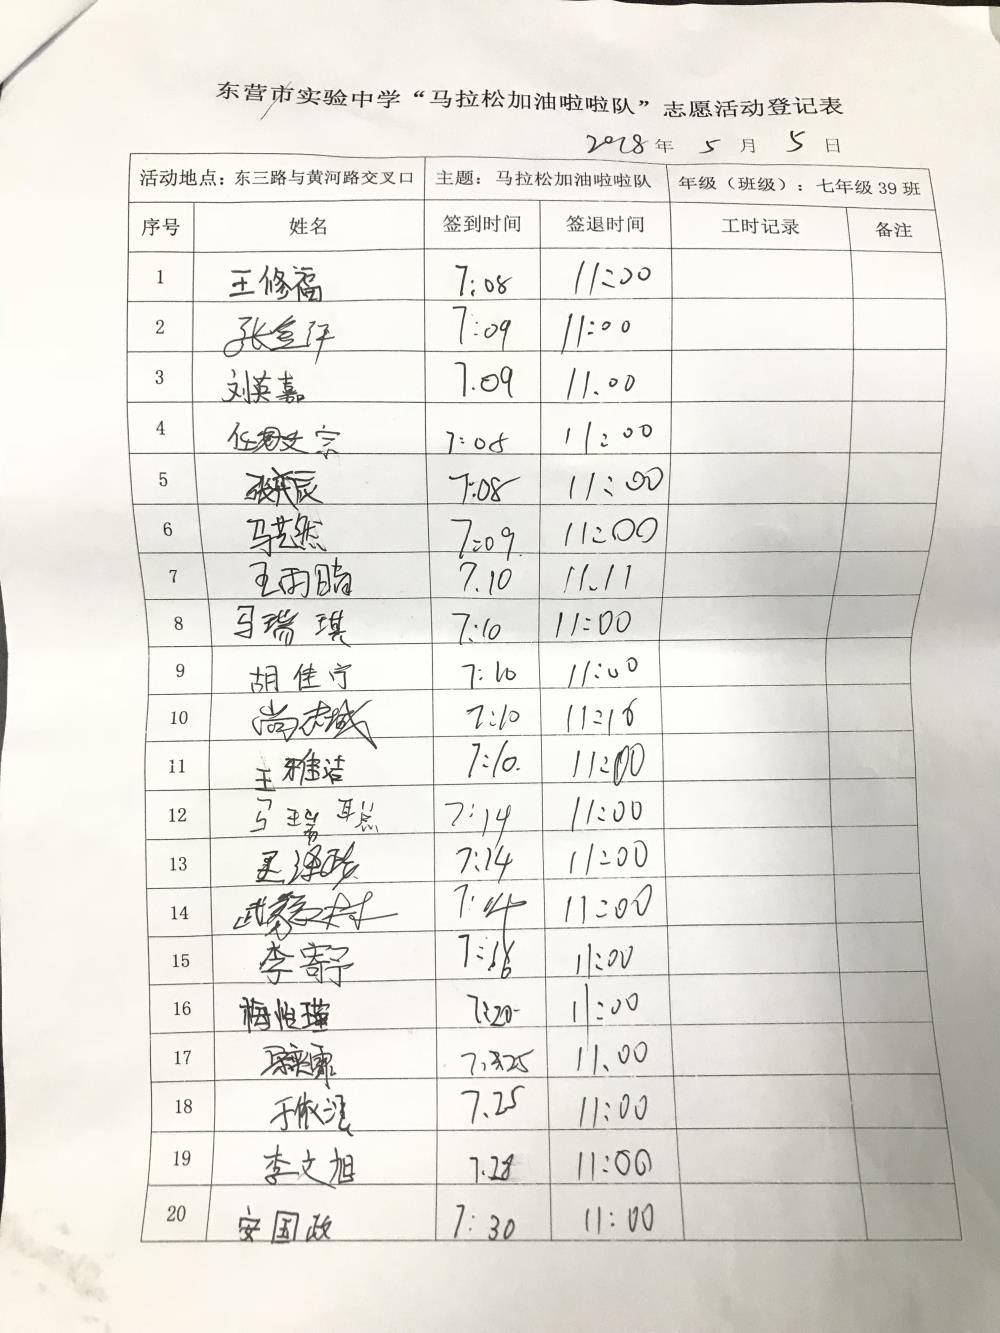 东营市实验中学“马拉松加油啦啦队”志愿活动登记表
2018年 5 月 5 日
活动地点：东三路与黄河路交叉口 主题：马拉松加油啦啦队 年级（班级）：七年级39班
序号 姓名 签到时间 签退时间 工时记录 备注
1 王修福 7:08 11:00
2 7:09 11:00
3 刘英嘉 7.09 11.00
4 7:08 11:00
5 7:08 11:00
6 马艺然 7:09 11:00
7 王雨晴 7.10 11.11
8 马瑞琪 7:10 11:00
9 胡佳宁 7:10 11:00
10 尚志城 7:10 11:16
11 王雅洁 7:10 11:00
12 7:14 11:00
13 7:14 11:00
14 11:00
15 李 11:00
16 7:20 11:00
17 11.00
18 于依 7.25 11:00
19 李文旭 7.28 11:00
20 安国政 7:30 11:00